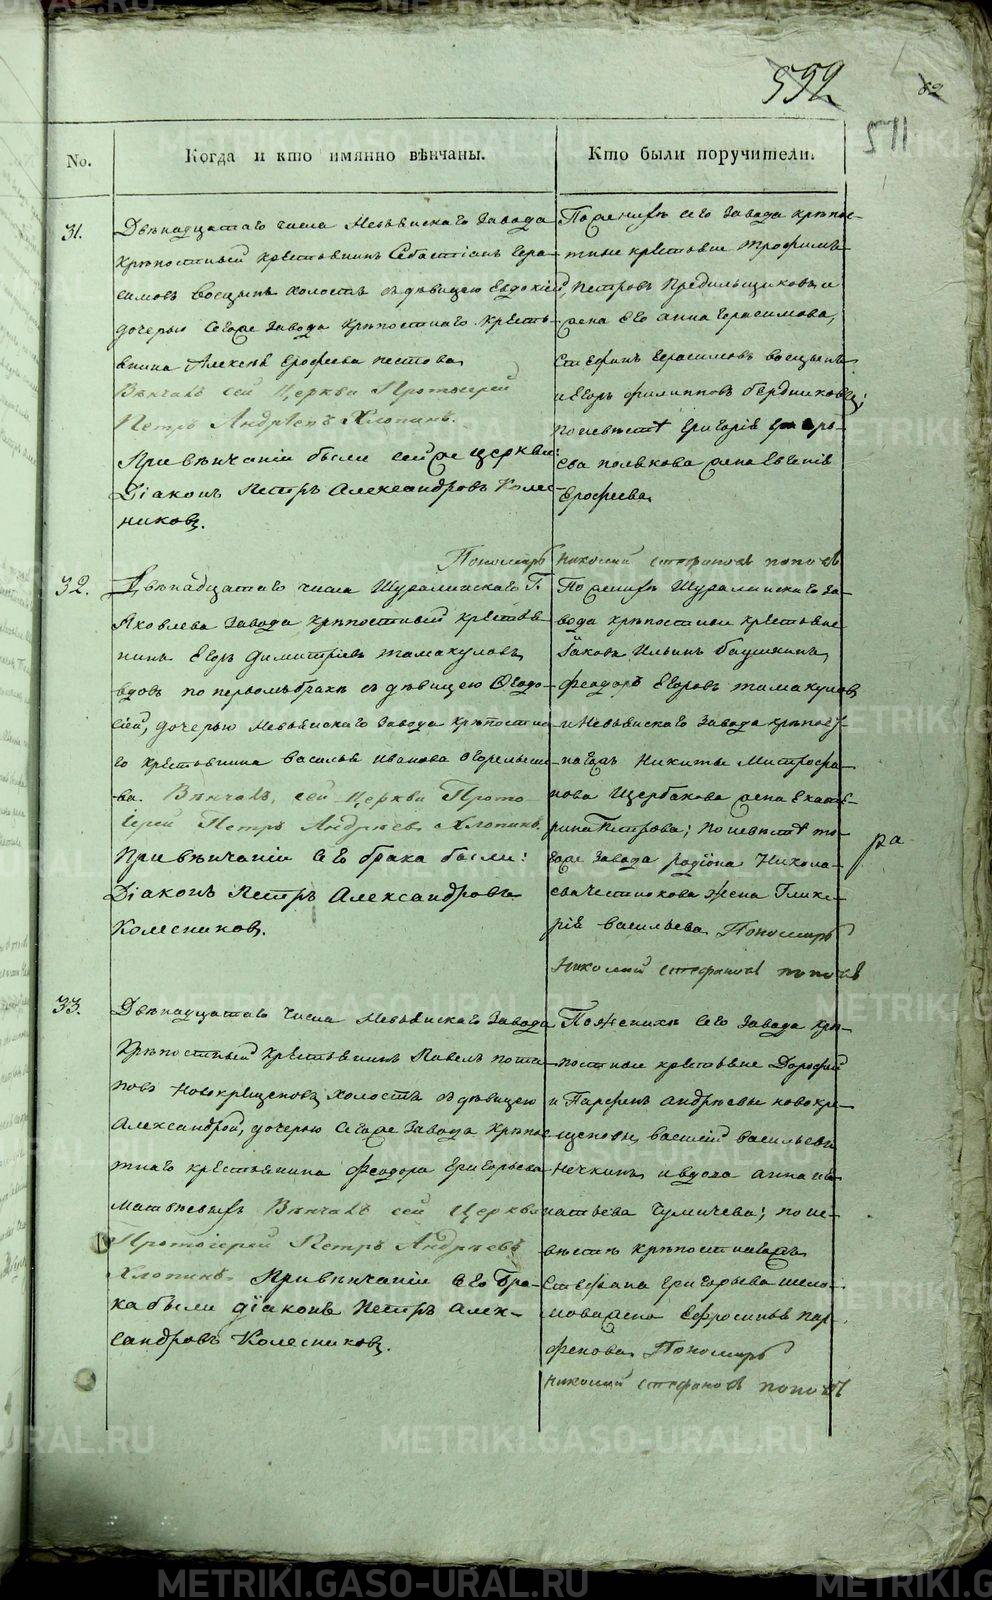 592
82
571
No.
Когда и кто имянно вѣнчаны.
Кто были поручители.
31.
Двѣнадцатаго числа Невьянскаго завода
крѣпостный крестьянинъ Севастіянъ Гера-
симовъ Воецынъ холостъ съ дѣвицею Евдокіею
дочерью тогоже завода крѣпостнаго кресть-
янина Алексѣя Ерофеева Пестова
Вѣнчалъ сей Церкви Протоіерей
Петръ Андрѣевъ Хлопинъ.
При вѣнчаніи были сейже церкви:
Діаконъ Петръ Александровъ Колес-
никовъ.
По женихѣ сего завода крѣпос-
тные крестьяне Трофимъ
Петровъ Прядильщиковъ и
жена его Анна Герасимова,
Стефанъ Герасимовъ Воецынъ
и Егоръ Филипповъ Бердниковъ;
по невѣстѣ Григорія
Полякова жена Евгенія
Ерофеева
Пономарь Николай Стефановъ Поповъ
32.
Двѣнадцатаго числа Шуралинскаго Г.
Яковлева завода крѣпостный крестья-
нинъ Егоръ Димитріевъ Тамакуловъ
вдовъ по первомъ бракѣ съ дѣвицею Ѳеодо-
сіей, дочерью Невьянскаго завода крѣпостна-
го крестьянина Василья Иванова
Вѣнчалъ, сей Церкви Прото-
іерей Петръ Андрѣевъ Хлопинъ.
При вѣнчаніи сего брака были:
Діаконъ Петръ Александровъ
Колесниковъ.
По женихѣ Шуралинскаго за-
вода крѣпостные крестьяне
Іаковъ Ильинъ Баушкинъ,
Феодоръ Егоровъ Тамакуловъ
и Невьянскаго завода крѣпост-
Никиты Митрофа-
нова Щербакова жена Екате-
рина Петрова; по невѣстѣ то-
гоже завода Родіона Никола-
ева жена Глике-
рія Васильева Пономарь
Николай Стефановъ Поповъ
ра
33.
Двѣнадцатаго числа Невьянскаго завода
крѣпостный крестьянинъ Павелъ Пота-
повъ Новокрещеновъ холостъ съ дѣвицею
Александрой, дочерью тогоже завода крѣпос-
тнаго крестьянина Феодора Григорьева
Матвѣевыхъ Вѣнчалъ сей Церкви
Протоіерей Петръ Андрѣевъ
Хлопинъ. При вѣнчаніи сего бра-
ка были діаконъ Петръ Алек-
сандровъ Колесниковъ.
По женихѣ сего завода крѣ-
постные крестьяне Дорофей
и Парфенъ Андрѣевы Новокре-
щеновы, Василій Васильевъ
Нечкинъ и вдова Анна Иг-
натьева Чумичева; по не-
вѣстѣ крѣпостнагожъ
Стефана Григорьева
жена Ефросинья Пар-
фенова Пономарь
Николай Стефановъ Поповъ
METRIKI.GASO-URAL.RU